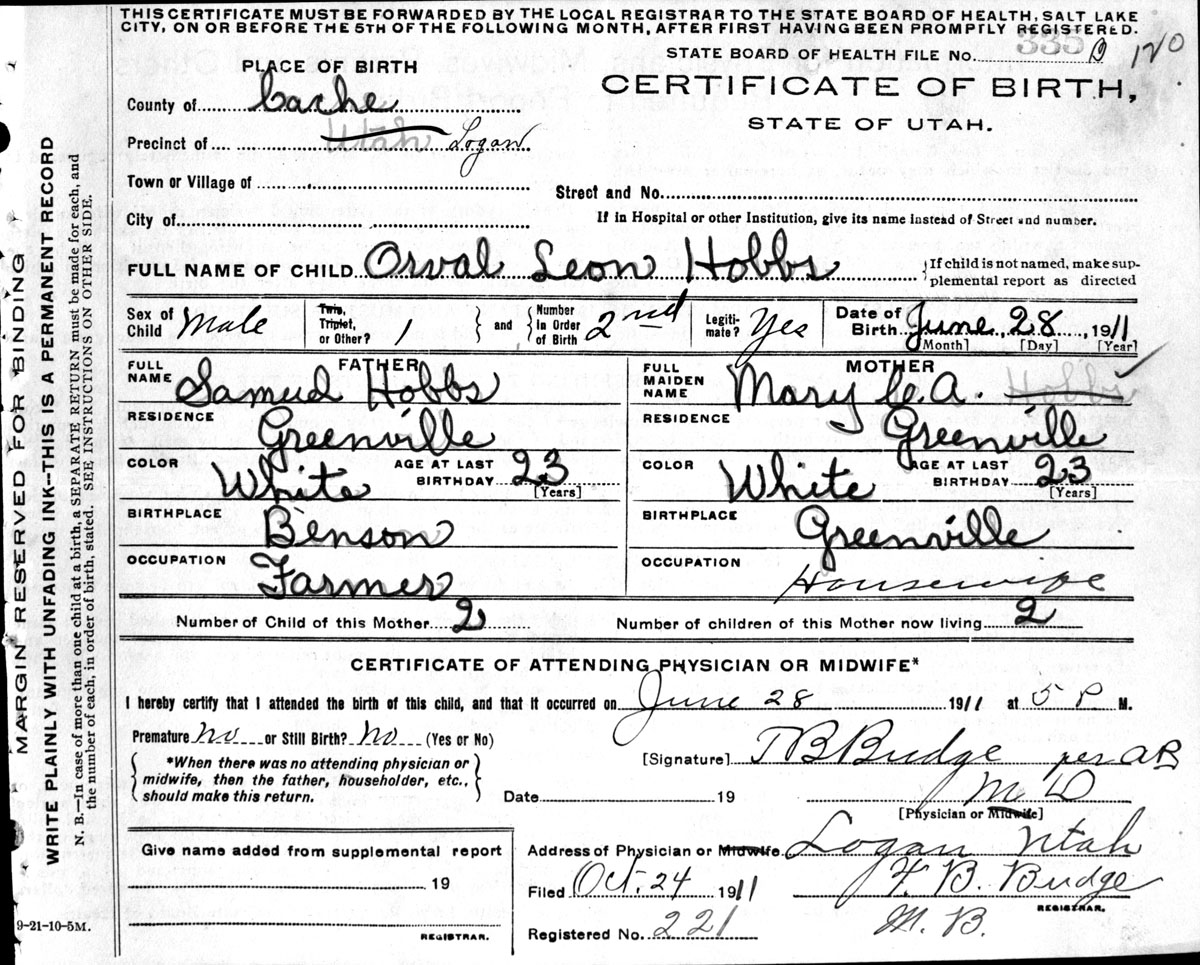 THIS CERTIFICATE MUST BE FORWARDED BY THE LOCAL REGISTRAR TO THE STATE BOARD OF HEALTH, SALT LAKE
CITY, ON OR BEFORE THE 5TH OF THE FOLLOWING MONTH, AFTER FIRST HAVING BEEN PROMPTLY REGISTERED.
STATE BOARD OF HEALTH FILE No. 335 120
PLACE OF BIRTH
CERTIFICATE OF BIRTH,
STATE OF UTAH.
County of Cache
Precinct of Utah Logan
Town or Village of
Street and No.
City of
If in Hospital or other Institution, give its name instead of Street and number.
FULL NAME OF CHILD Orval Leon Hobbs {If child is not named, make sup-
plemental report as directed
Sex of Child Male
Twin, Triplet, or Other? 1 } and { Number in Order of Birth 2nd
Legiti-mate? Yes
Date of Birth June, 28, 1911
[Month] [Day] [Year]
FATHER
FULL NAME Samuel Hobbs
RESIDENCE Greenville
COLOR White AGE AT LAST BIRTHDAY 23
[Years]
BIRTHPLACE Benson
OCCUPATION Farmer
MOTHER
FULL MAIDEN NAME Mary C. A. Hobbs
RESIDENCE Greenville
COLOR White AGE AT LAST BIRTHDAY 23
[Years]
BIRTHPLACE Greenville
OCCUPATION Housewife
Number of Child of this Mother 2 Number of children of this Mother now living 2
CERTIFICATE OF ATTENDING PHYSICIAN OR MIDWIFE*
I hereby certify that I attended the birth of this child, and that it occurred on June 28 1911 at 5 P M.
Premature No or Still Birth? No (Yes or No)
{ *When there was no attending physician or
midwife, then the father, householder, etc.,
should make this return. }
[Signature] T B Budge per AB
Date 19 M D
[Physician or Midwife]
Give name added from supplemental report
19
REGISTRAR.
Address of Physician or Midwife Logan Utah
Filed Oct. 24 1911 F. B. Budge
REGISTRAR.
Registered No. 221 M. B.
9-21-10-5M.
MARGIN RESERVED FOR BINDING
WRITE PLAINLY WITH UNFADING INK--THIS IS A PERMANENT RECORD
N. B.--In case of more than one child at a birth, a SEPARATE RETURN must be made for each, and
the number of each, in order of birth, stated. SEE INSTRUCTIONS ON OTHER SIDE.